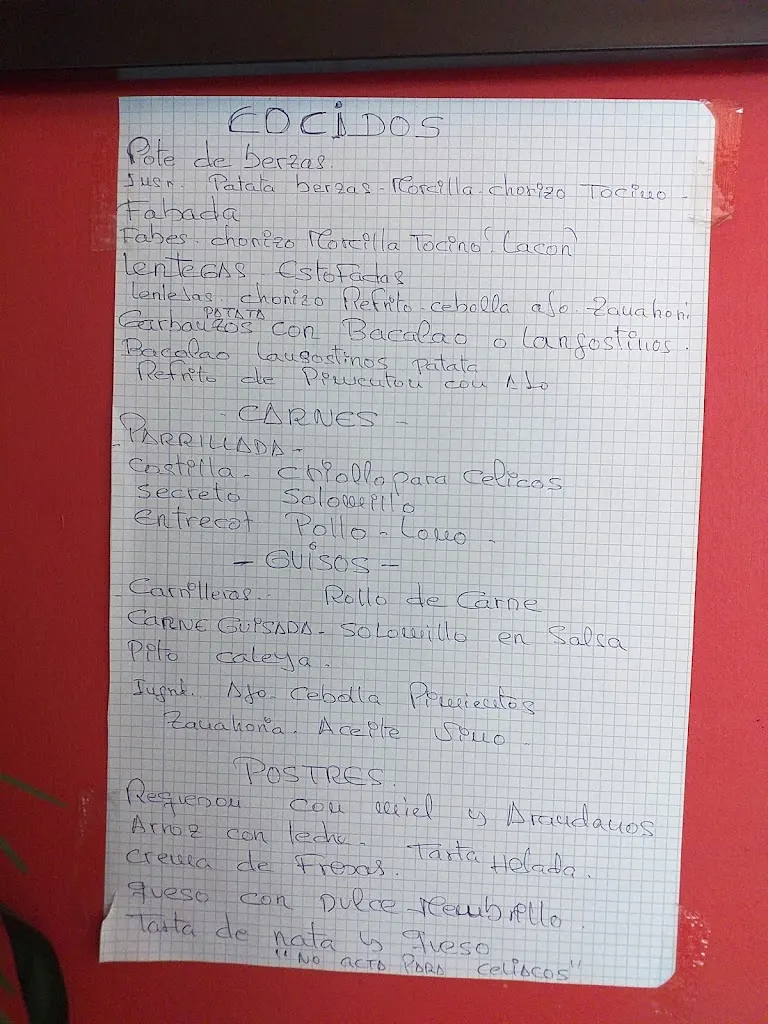 COCIDOS
Pote de berzas.
Ingr. Patata berzas - Morcilla - chorizo Tocino -
Fabada
Fabes. chorizo Morcilla Tocino (Lacon)
LENTEGAS Estofadas
lentejas. chorizo Refrito - cebolla ajo. Zanahori
PATATA
Garbanzos con Bacalao o langostinos.
Bacalao langostinos patata
Refrito de Pimenton con Ajo
- CARNES -
PARRILLADA -
Costilla - Criollo para Celicos
Secreto Solomillo
entrecot Pollo - Lomo -
- GUISOS -
Carrilleras. - Rollo de Carne
CARNE GUISADA - Solomillo en Salsa
Pito caleya.
Ingr. Ajo - Cebolla Pimientos
Zanahoria. Aceite Vino -
POSTRES.
Requeson con miel y Arandanos
Arroz con leche. Tarta Helada.
crema de Fresas.
queso con Dulce Membrillo.
Tarta de nata y queso
"NO ACTO PARA CELIACOS"